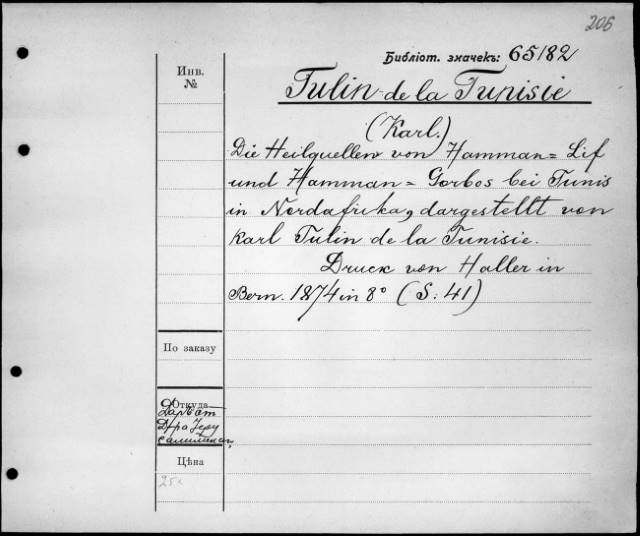 206
Библіот. значекъ: 65182
Инв.
№
Tulin de la Tunisie
(Karl.)
Die Heilquellen von Hamman= Lif
und Hamman= Gorbos bei Tunis
in Nordafrika, dargestellt von
Karl Tulin de la Tunisie.
Druck von Haller in
Bern. 1874 in 8° (S: 41)
По заказу
Откуда
Даръ от
Д-ра Іеру
салимскаго
Цѣна
25к